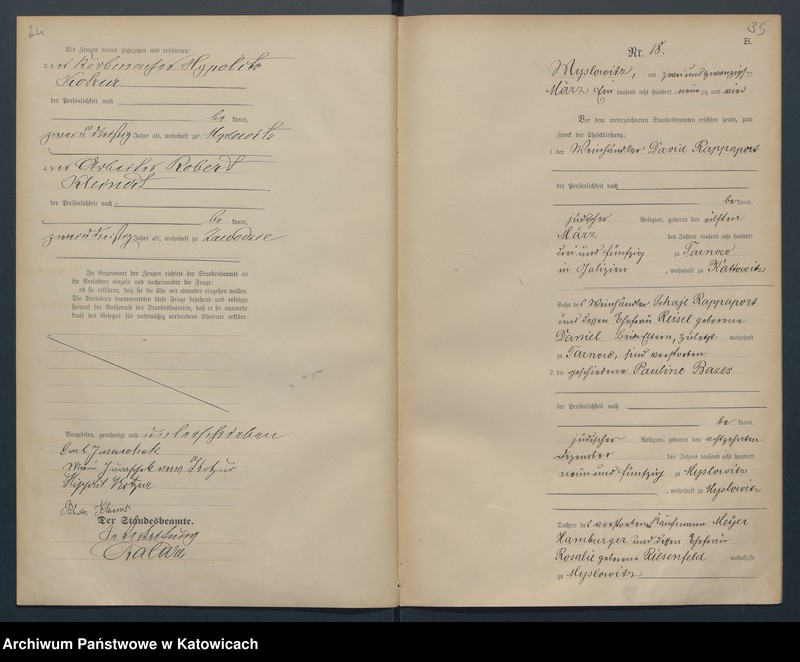 34
Als Zeugen waren zugezogen und erschienen:
3. der Korbmacher Hypolit
Kotzur
der Persönlichkeit nach
be kannt,
zwei u. dreißig Jahre alt, wohnhaft zu Myslowitz
4. der Arbeiter Robert
Kleinert
der Persönlichkeit nach
be kannt,
zwei u. dreißig Jahre alt, wohnhaft zu Zawodzie
In Gegenwart der Zeugen richtete der Standesbeamte an
die Verlobten einzeln und nacheinander die Frage:
ob sie erklären, daß sie die Ehe mit einander eingehen wollen.
Die Verlobten beantworteten diese Frage bejahend und erfolgte
hierauf der Ausspruch des Standesbeamten, daß er sie nunmehr
kraft des Gesetzes für rechtmäßig verbundene Eheleute erkläre.
Vorgelesen, genehmigt und unterschrieben
Carl Juraschek
Kotzur
Hippolit Kotzur
Der Standesbeamte.
In Vertretung
35
B.
Nr. 18.
Myslowitz, am zwei und zwanzigsten
März Ein tausend acht hundert neunzig und vier
Vor dem unterzeichneten Standesbeamten erschien heute, zum
Zweck der Eheschließung:
1. der Weinhändler David Rappaport
der Persönlichkeit nach
bekannt,
jüdischer Religion, geboren den elften
März des Jahres tausend acht hundert
drei und fünfzig zu Tarnow
in Galizien, wohnhaft zu Kattowitz
Sohn des Weinhändler Schaje Rappaport
und dessen Ehefrau Reisel geborene
Daniel. Beide Eltern, zuletzt wohnhaft
zu Tarnow, sind verstorben
2. die geschiedene Pauline Bazes
der Persönlichkeit nach
be kannt,
jüdischer Religion, geboren den achtzehnten
Dezember des Jahres tausend acht hundert
neun und fünfzig zu Myslowitz
, wohnhaft zu Myslowitz
Tochter des verstorbenen Kaufmann Meyer
Hamburger und dessen Ehefrau
Rosalie geborene Riesenfeld wohnhaft
zu Myslowitz
Archiwum Państwowe w Katowicach